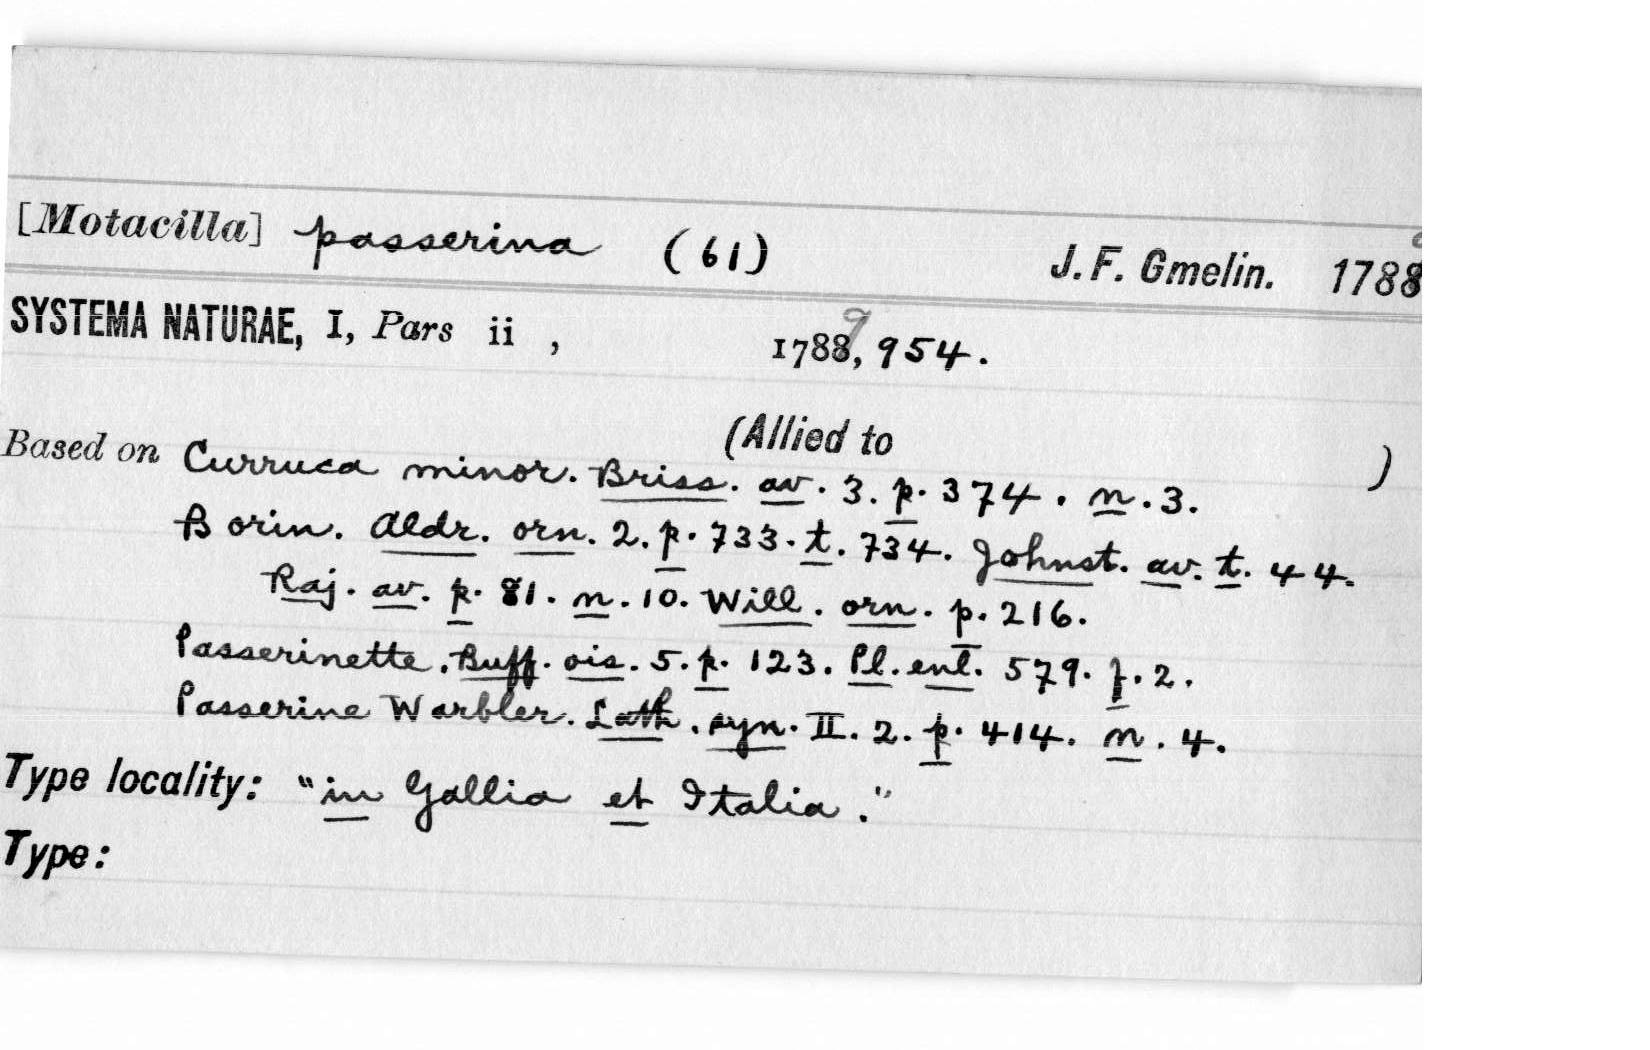 [Motacilla] passerina (61) J. F. Gmelin. 1788
SYSTEMA NATURAE, I, Pars ii , 17889, 954.
(Allied to )
Based on Curruca minor. Briss. av. 3. p. 374. n. 3.
Borin. Aldr. orn. 2. p. 733. t. 734. Johnst. av. t. 44.
Raj. av. p. 81. n. 10. Will. orn. p. 216.
Passerinette. Buff. ois. 5. p. 123. Pl. enl. 579. f. 2.
Passerine Warbler. Lath. syn. II. 2. p. 414. n. 4.
Type locality: "in Gallia et Italia."
Type: